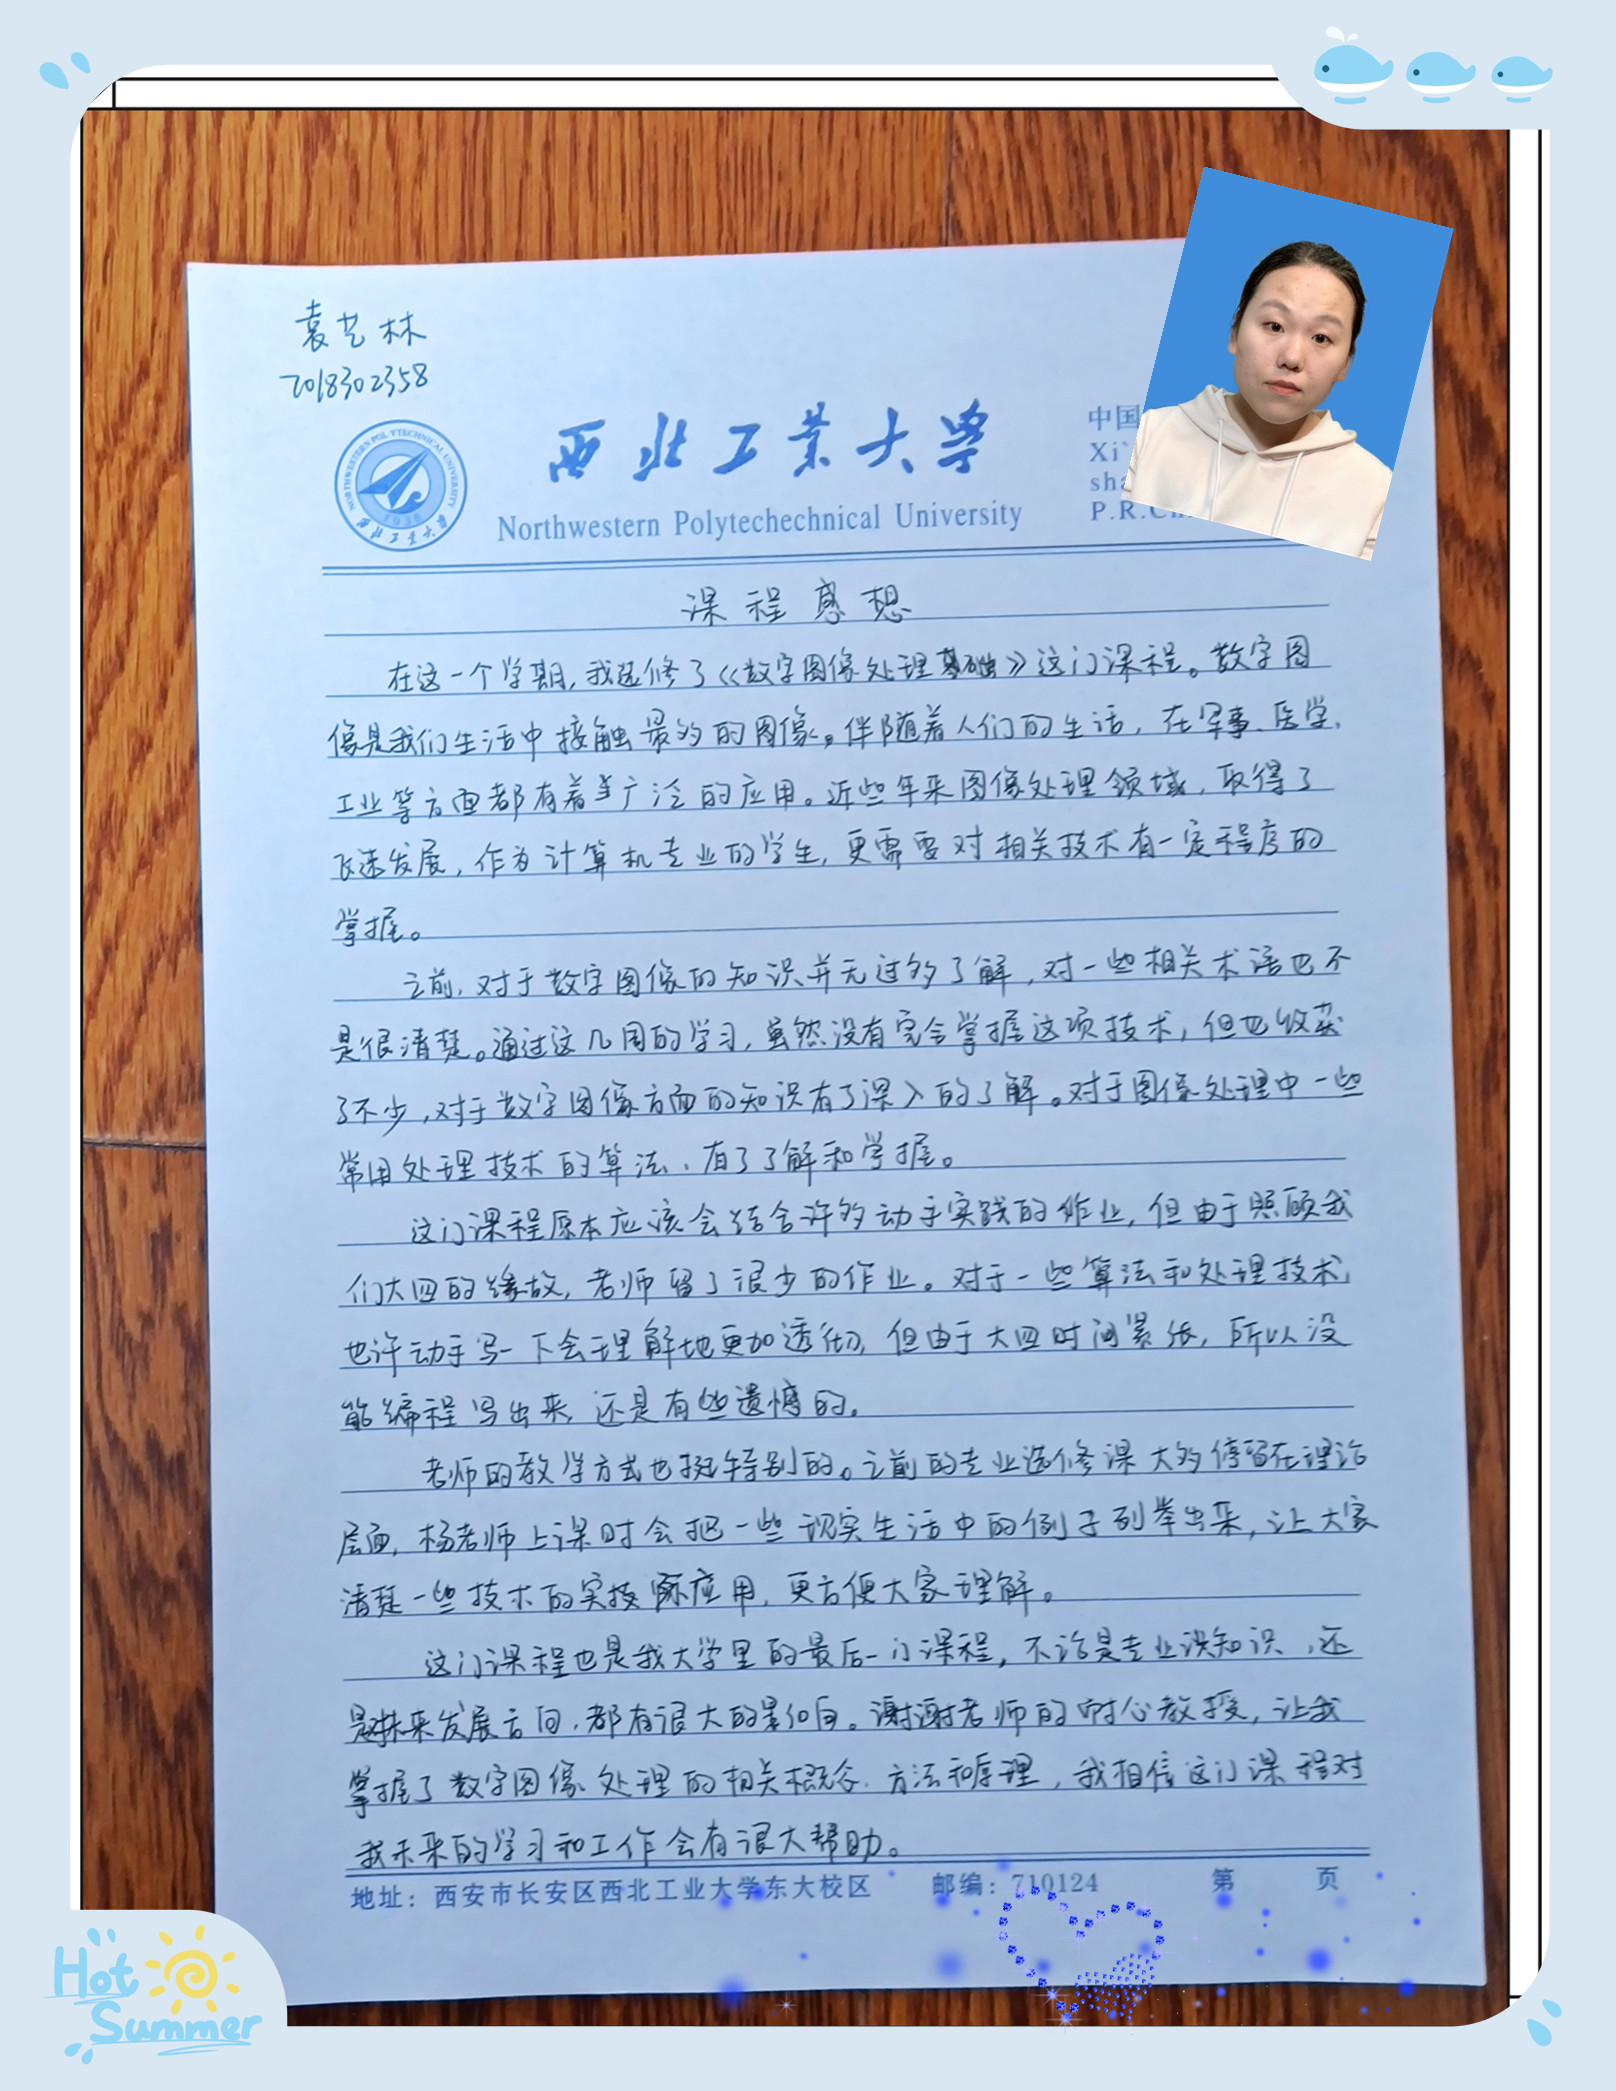 袁艺林
2018302358
NORTHWESTERN POLYTECHNICAL UNIVERSITY
1938
西北工业大学
西北工业大学
Northwestern Polytechechnical University
中国
Xi'
sha
P.R.C
课程感想
在这一个学期,我选修了《数字图像处理基础》这门课程。数字图
像是我们生活中接触最多的图像。伴随着人们的生活,在军事、医学、
工业等方面都有着广泛的应用。近些年来图像处理领域,取得了
飞速发展,作为计算机专业的学生,更需要对相关技术有一定程度的
掌握。
之前,对于数字图像的知识并无过多了解,对一些相关术语也不
是很清楚。通过这几周的学习,虽然没有完全掌握这项技术,但也收获
了不少,对于数字图像方面的知识有了深入的了解。对于图像处理中一些
常用处理技术的算法、有了了解和掌握。
这门课程原本应该会结合许多动手实践的作业,但由于照顾我
们大四的缘故,老师留了很少的作业。对于一些算法和处理技术,
也许动手写一下会理解地更加透彻,但由于大四时间紧张,所以没
能编程写出来,还是有些遗憾的。
老师的教学方式也挺特别的。之前的专业选修课大多停留在理论
层面,杨老师上课时会把一些现实生活中的例子列举出来,让大家
清楚一些技术的实际应用,更方便大家理解。
这门课程也是我大学里的最后一门课程,不论是专业课知识,还
是未来发展方向,都有很大的影响。谢谢老师的耐心教授,让我
掌握了数字图像处理的相关概念、方法和原理,我相信这门课程对
我未来的学习和工作会有很大帮助。
地址：西安市长安区西北工业大学东大校区 邮编：710124 第 页
Hot
Summer